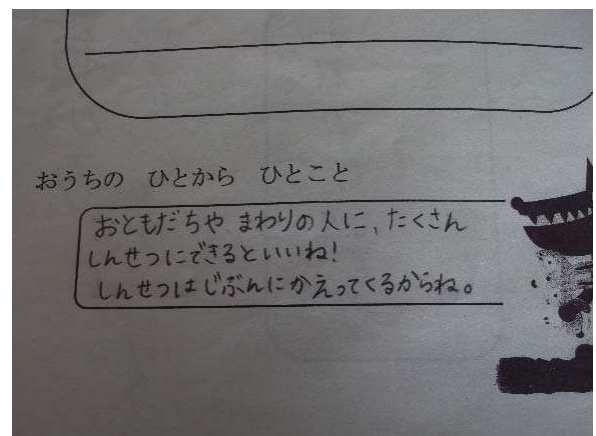 おうちの　ひとから　ひとこと
おともだちや まわりの人に、たくさん
しんせつにできるといいね!
しんせつはじぶんにかえってくるからね。